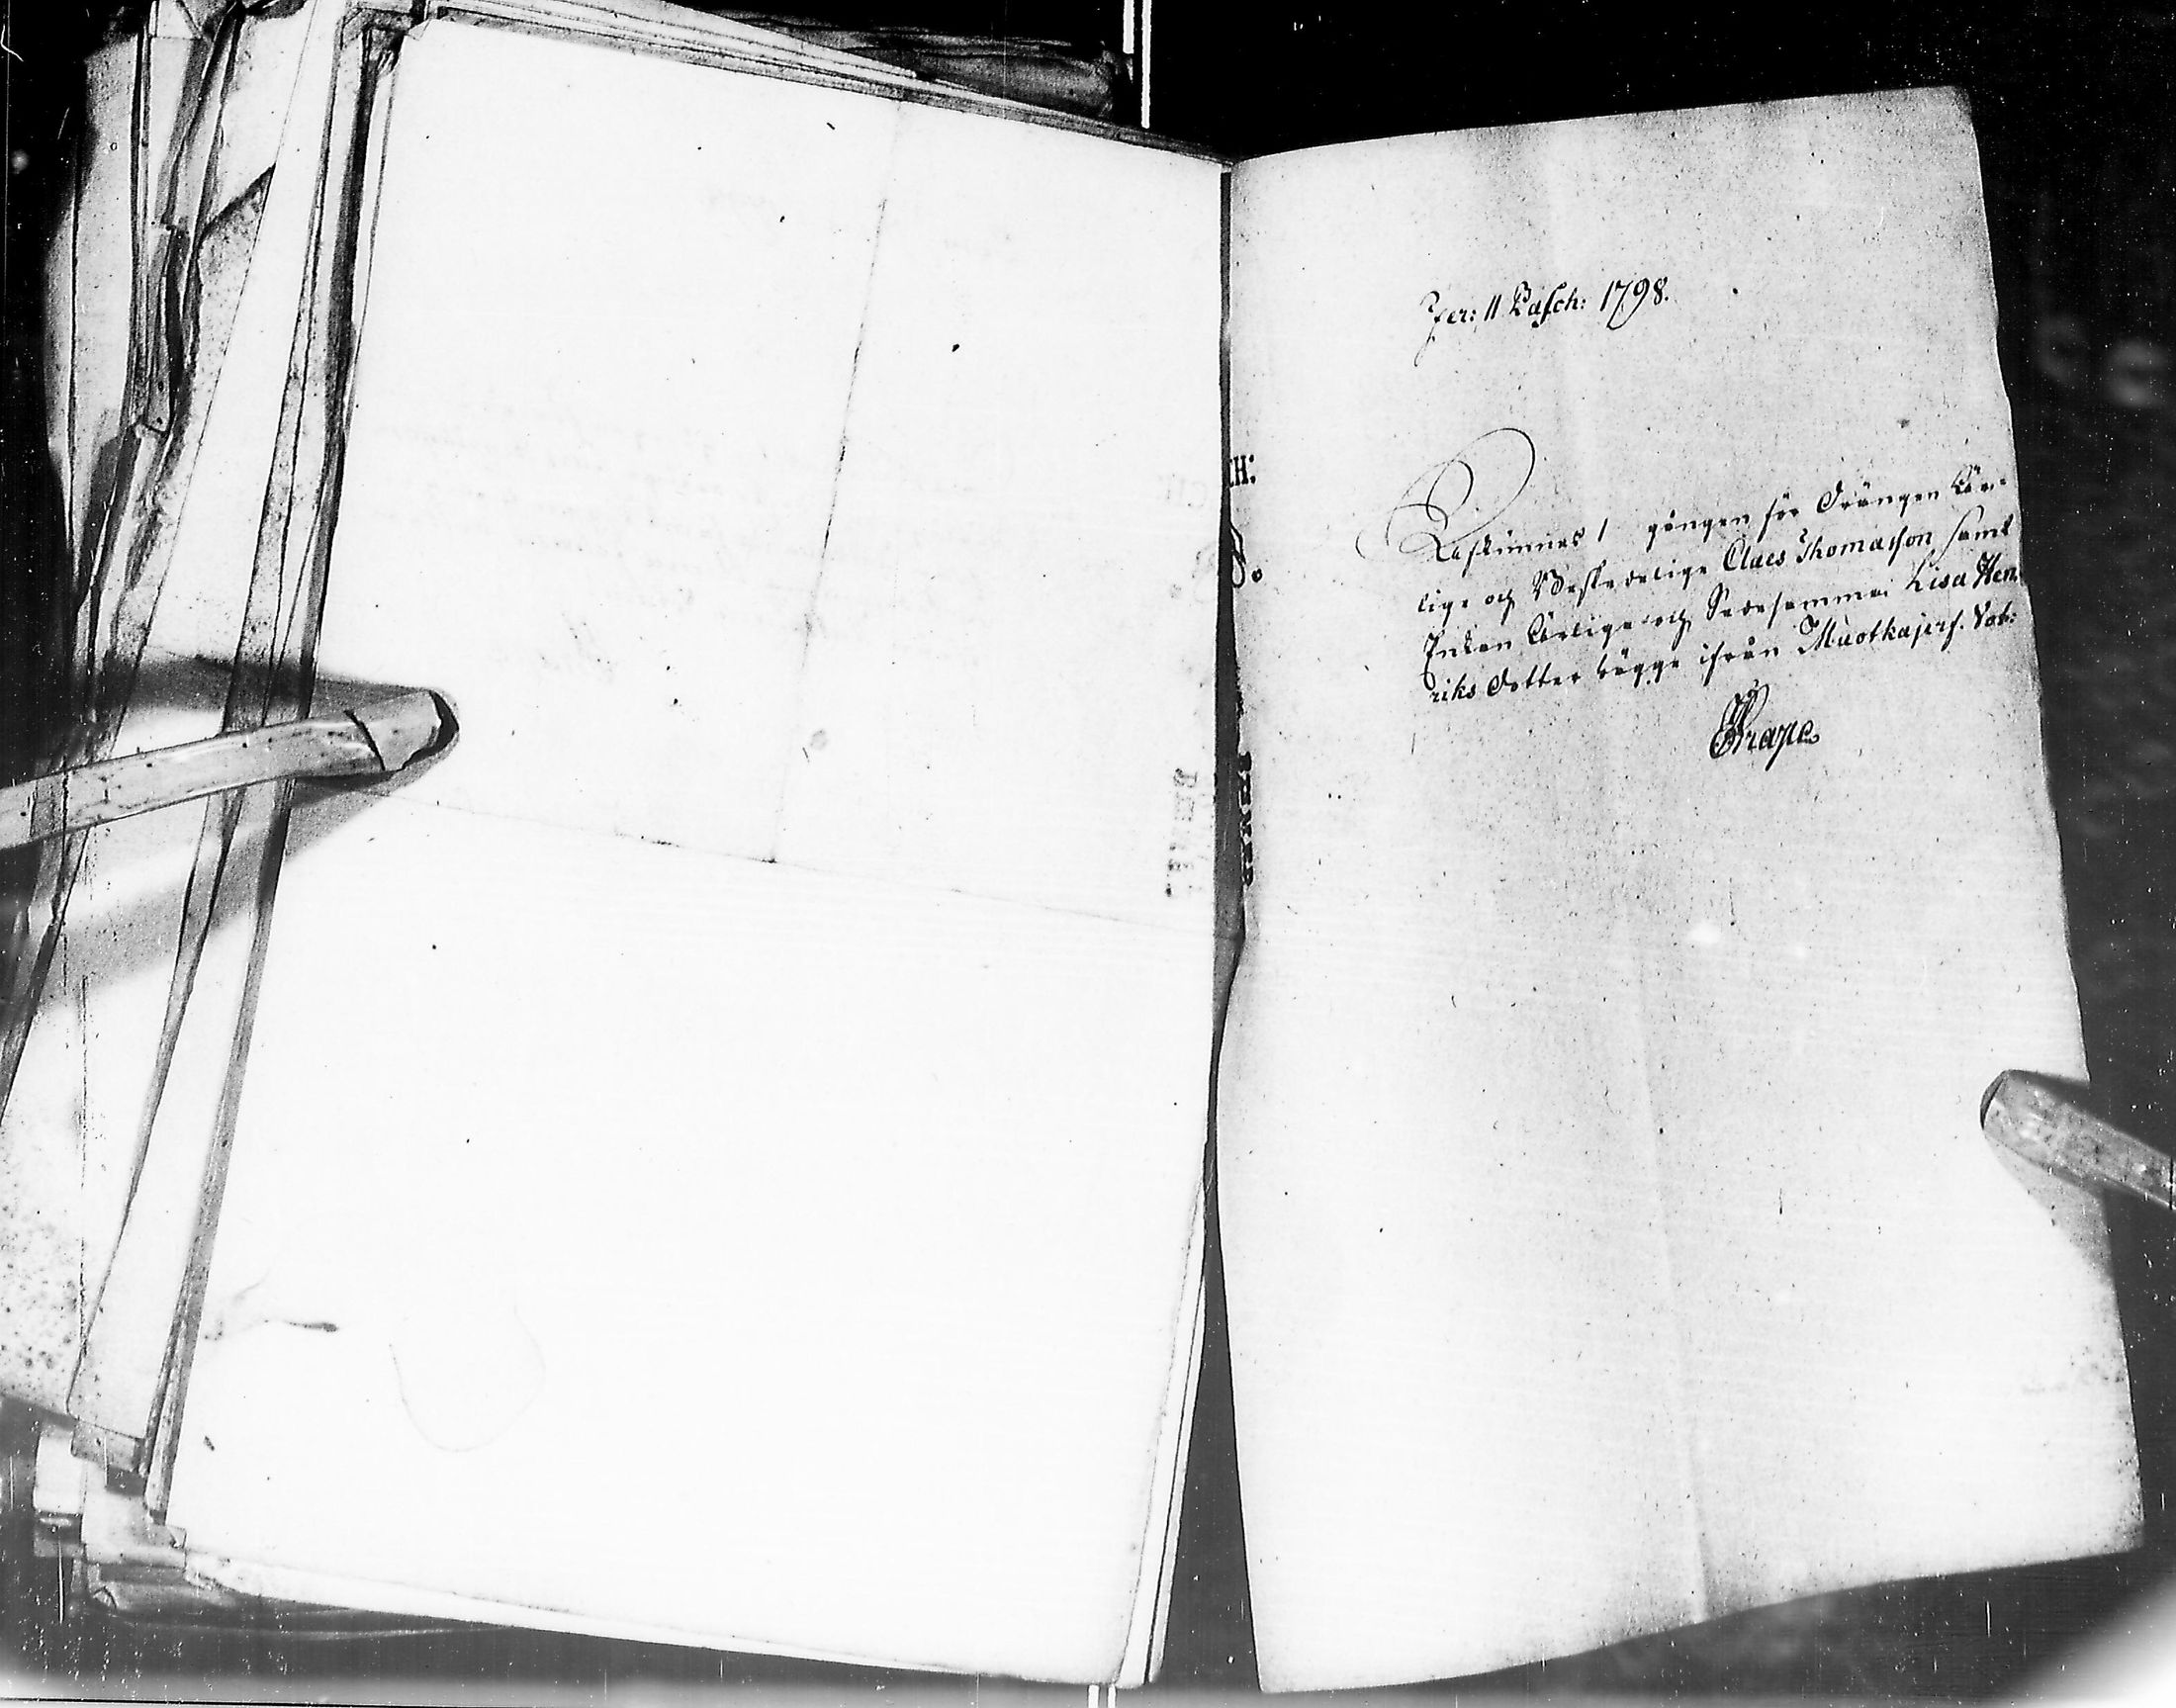 Fer: II Pasch: 1798.
CH:
8.
Afkunnes 1 gången för Drängen Är-
lige och Beskedelige Claes Thomasson samt
Enkan Ärlige och Sedesamma Lisa Hen-
riks dotter bägge ifrån Muotkajerf.